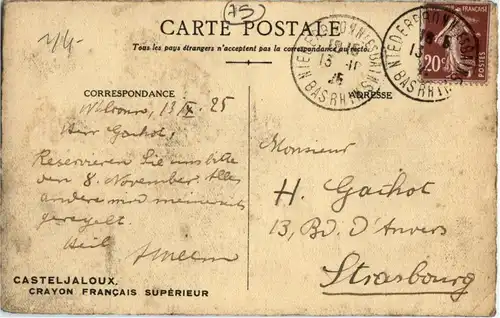 75
44-
CARTE POSTALE
Tous les pays étrangers n'acceptent pas la correspondance au recto.
NIEDERBRONN LES BAINS
13 - 11
25
BAS RHIN
NIEDERBRONN LES BAINS
13
BAS RHIN
FRANÇAISE
20c
POSTES
CORRESPONDANCE
ADRESSE
13/X. 25
Herr Gachot,
Reservieren Sie uns bitte
den 8. November. Alles
andere wird
geregelt.
Heil
Monsieur
H. Gachot
13, Bd. D'Anvers
Strasbourg
CASTELJALOUX.
CRAYON FRANÇAIS SUPÉRIEUR